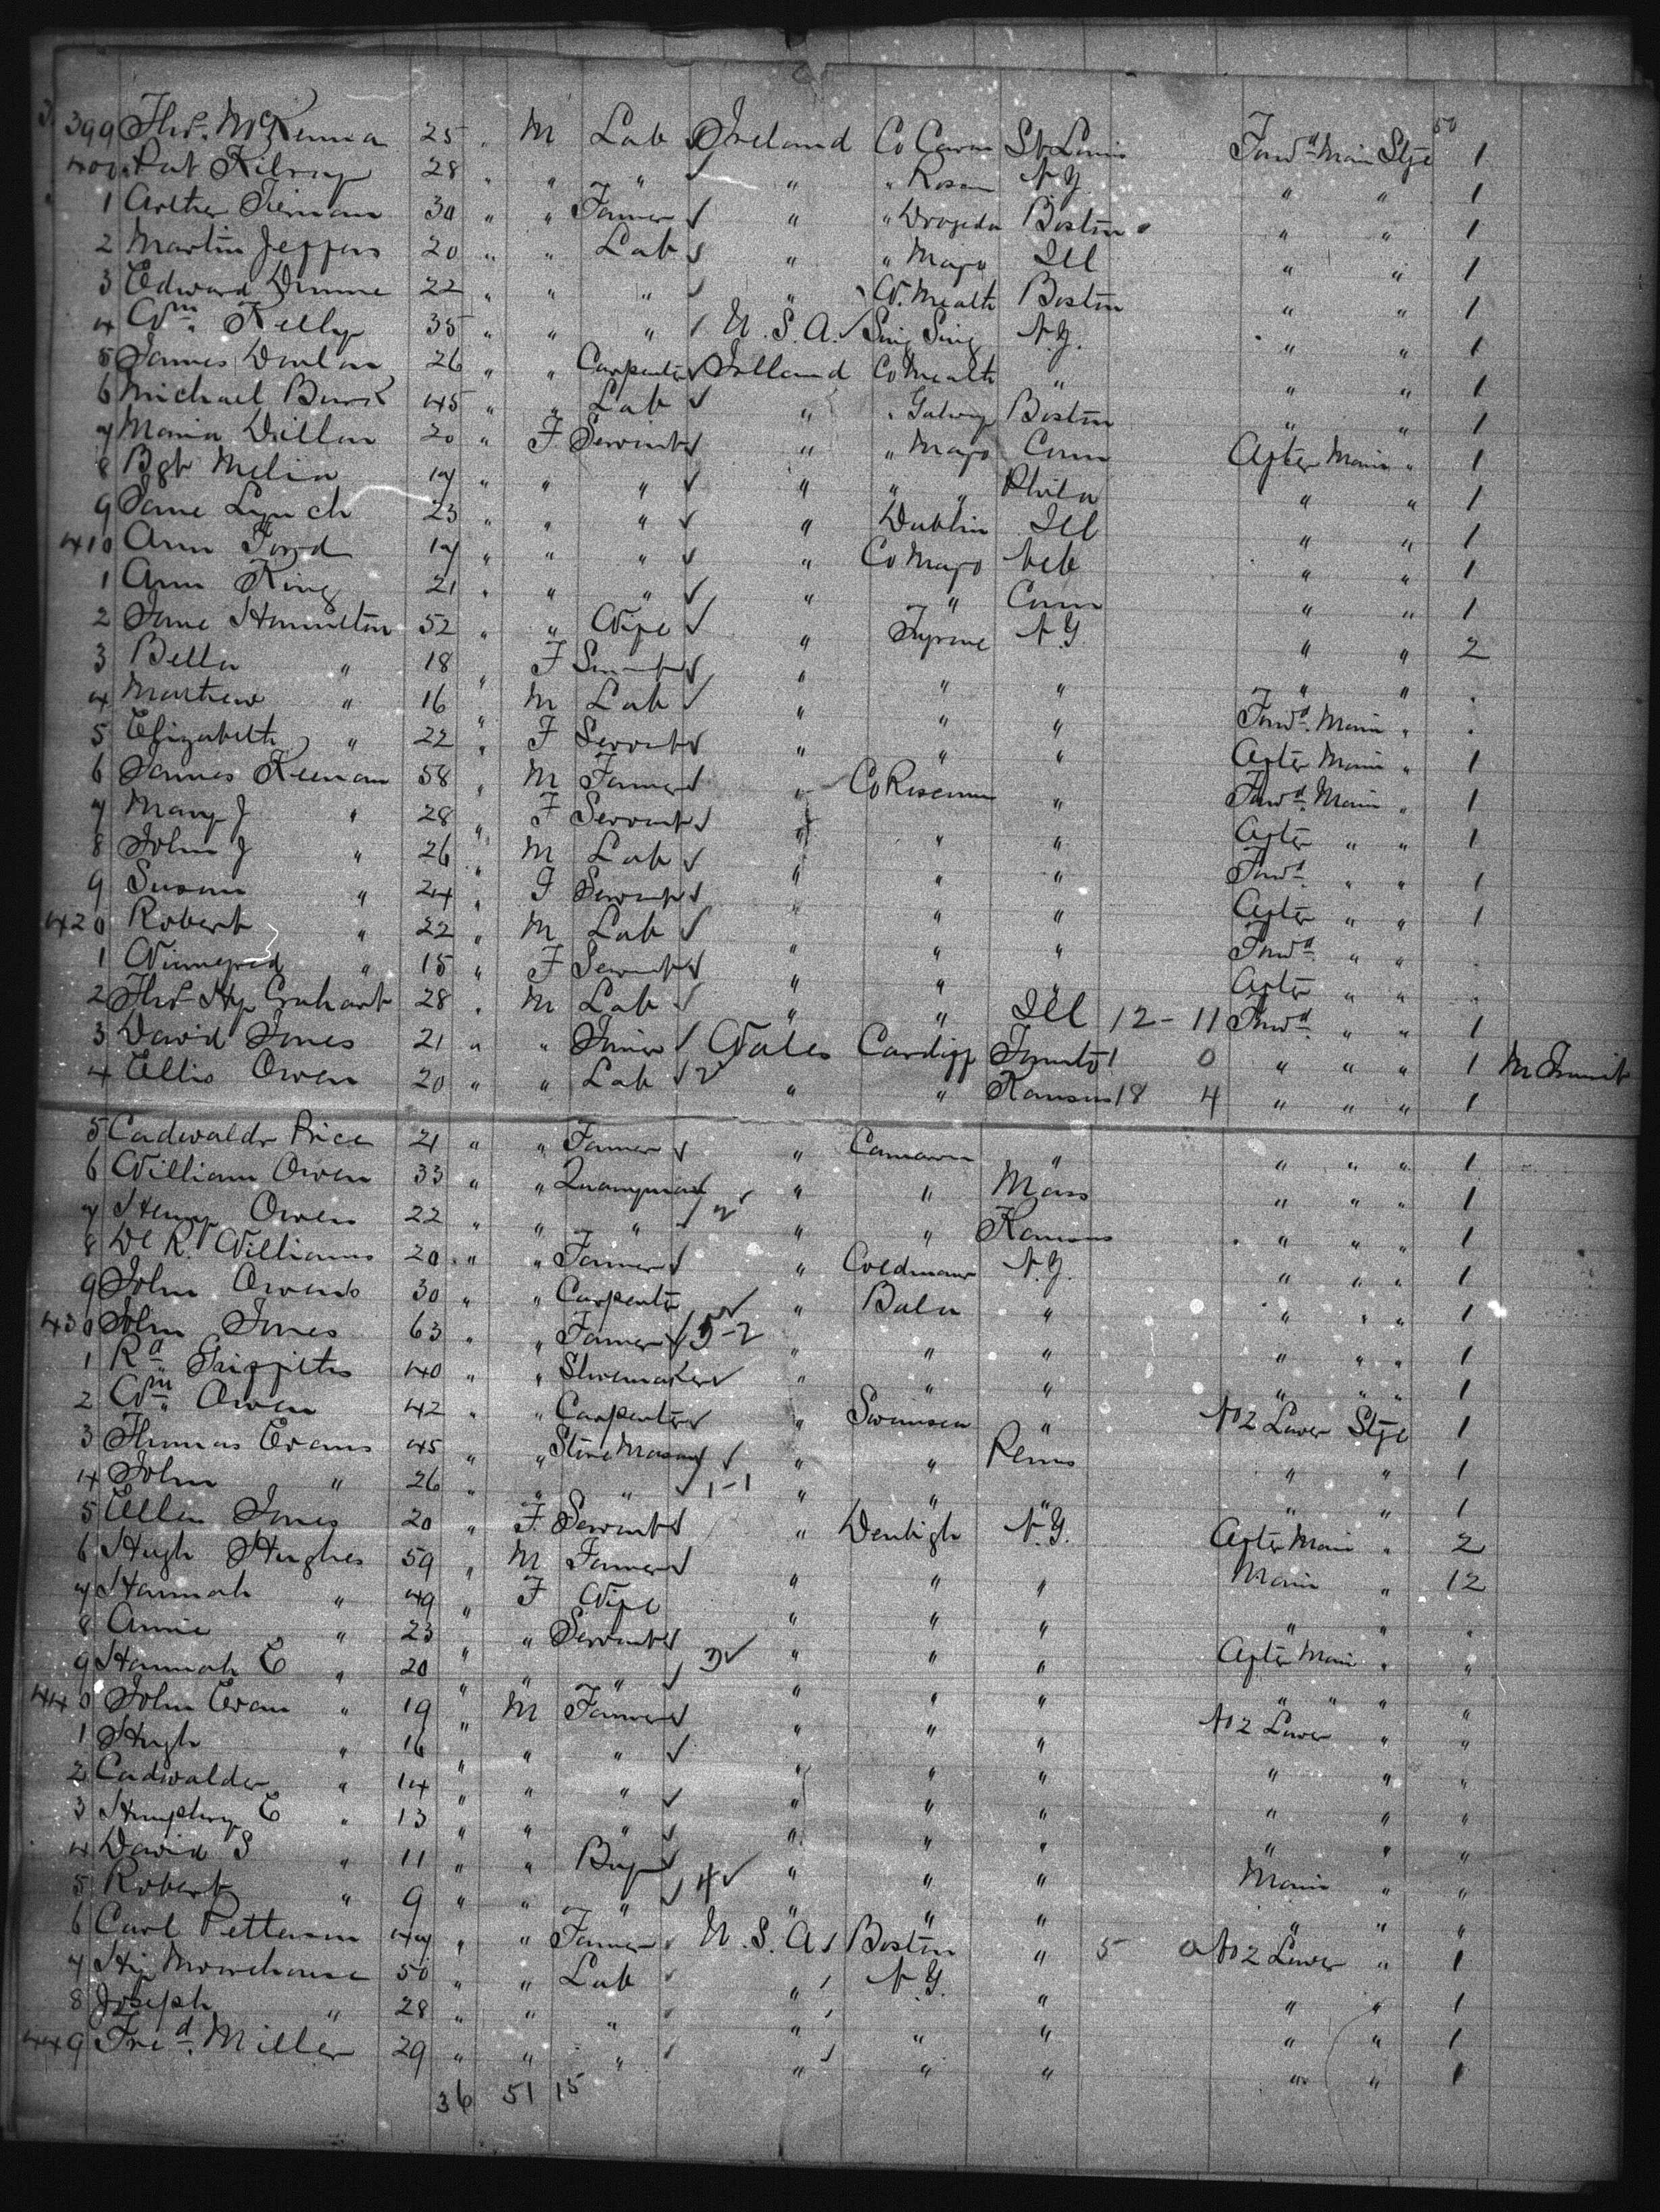 399 Thos. McKenna 25 " M Lab Ireland Co Cavan St Louis Forwd Main Stge 1
400 Pat Kilroy 28 " " " " " Roscn N.Y. " " 1
1 Arther Tiernan 30 " " Farmer " " Drogeda Boston " " 1
2 Martin Jeffers 20 " " Lab " " Mayo Ill " " 1
3 Edward Dunne 22 " " " " W. Meath Boston " " 1
4 Wm. Kelly 35 " " " U.S.A. Sing Sing N.Y. " " 1
5 James Donlon 26 " " Carpenter Irland Co Meath " " " 1
6 Michael Burk 45 " " Lab " " Galway Boston " " 1
7 Maria Dillon 20 " F Servint " " Mayo Conn After Main " 1
8 Bgt Melia 17 " " " " " " Phila " " 1
9 Jane Lynch 23 " " " " Dublin Ill " " 1
410 Ann Ford 17 " " " " Co Mayo " " 1
1 Ann King 21 " " " " " Conn " " 1
2 Jane Hamilton 52 " " Wife " Tyrone N.Y. " " 2
3 Bella " 18 " F Servint " " " " "
4 Mathew " 16 " M Lab " " " Forwd. Main "
5 Elizabeth " 22 " F Servint " " " After Main " 1
6 James Keenan 58 " M Farmer " Co Roscmn " Forwd. Main " 1
7 Mary J " 28 " F Servint " " " After " " 1
8 John J " 26 " M Lab " " " Forwd. " " 1
9 Susan " 24 " F Servint " " " After " " 1
420 Robert " 22 " M Lab " " " Forwd. " "
1 Winnefred " 15 " F Servint " " " After " "
2 Thos Hy 28 " M Lab " " Ill 12-11 Forwd. " " 1
3 David Jones 21 " " Joiner Wales Cardiff Toronto 1 0 " " " 1
4 Ellis Owen 20 " " Lab 2 " " Kansas 18 4 " " " 1
5 Cadwaldr Price 21 " " Farmer " Carnarvn " " " " 1
6 William Owen 33 " " Quarryman " " Mass " " " 1
7 Henry Owen 22 " " " 2 " " Kansas " " " 1
8 Wl R. Williams 20 " " Farmer " N.Y. " " " 1
9 John Owens 30 " " Carpenter " Bala " " " " 1
430 John Jones 63 " " Farmer 5-2 " " " " " " 1
1 Rd. Griffiths 40 " " Shoemaker " " " " " " 1
2 Wm. Owen 42 " " Carpenter " Swansea " No 2 Lower Stge 1
3 Thomas Evans 45 " " Stone Mason " " Penns " " 1
4 John " 26 " " " 1-1 " " " " " 1
5 Ellen Jones 20 " F Servint " Denbigh N.Y. After Main " 2
6 Hugh Hughes 59 " M Farmer " " " Main " 12
7 Hannah " 49 " F Wife " " " " "
8 Annie " 23 " " Servint " " " After Main " "
9 Hannah E " 20 " " " 3 " " " " " " "
440 John Evan " 19 " M Farmer " " " No 2 Lower " "
1 Hugh " 16 " " " " " " " " "
2 Cadwalder " 14 " " " " " " " " "
3 Humphry E " 13 " " " " " " " " "
4 David S " 11 " " Boy " " " Main " "
5 Robert " 9 " " " 4 " " " " " "
6 Carl Petterson 47 " " Farmer U.S.A. Boston " 5 0 No 2 Lower " 1
7 Hy Moorehouse 50 " " Lab " N.Y. " " " 1
8 Joseph " 28 " " " " " " " " 1
449 Fred. Miller 29 " " " " " " " " 1
36 51 15